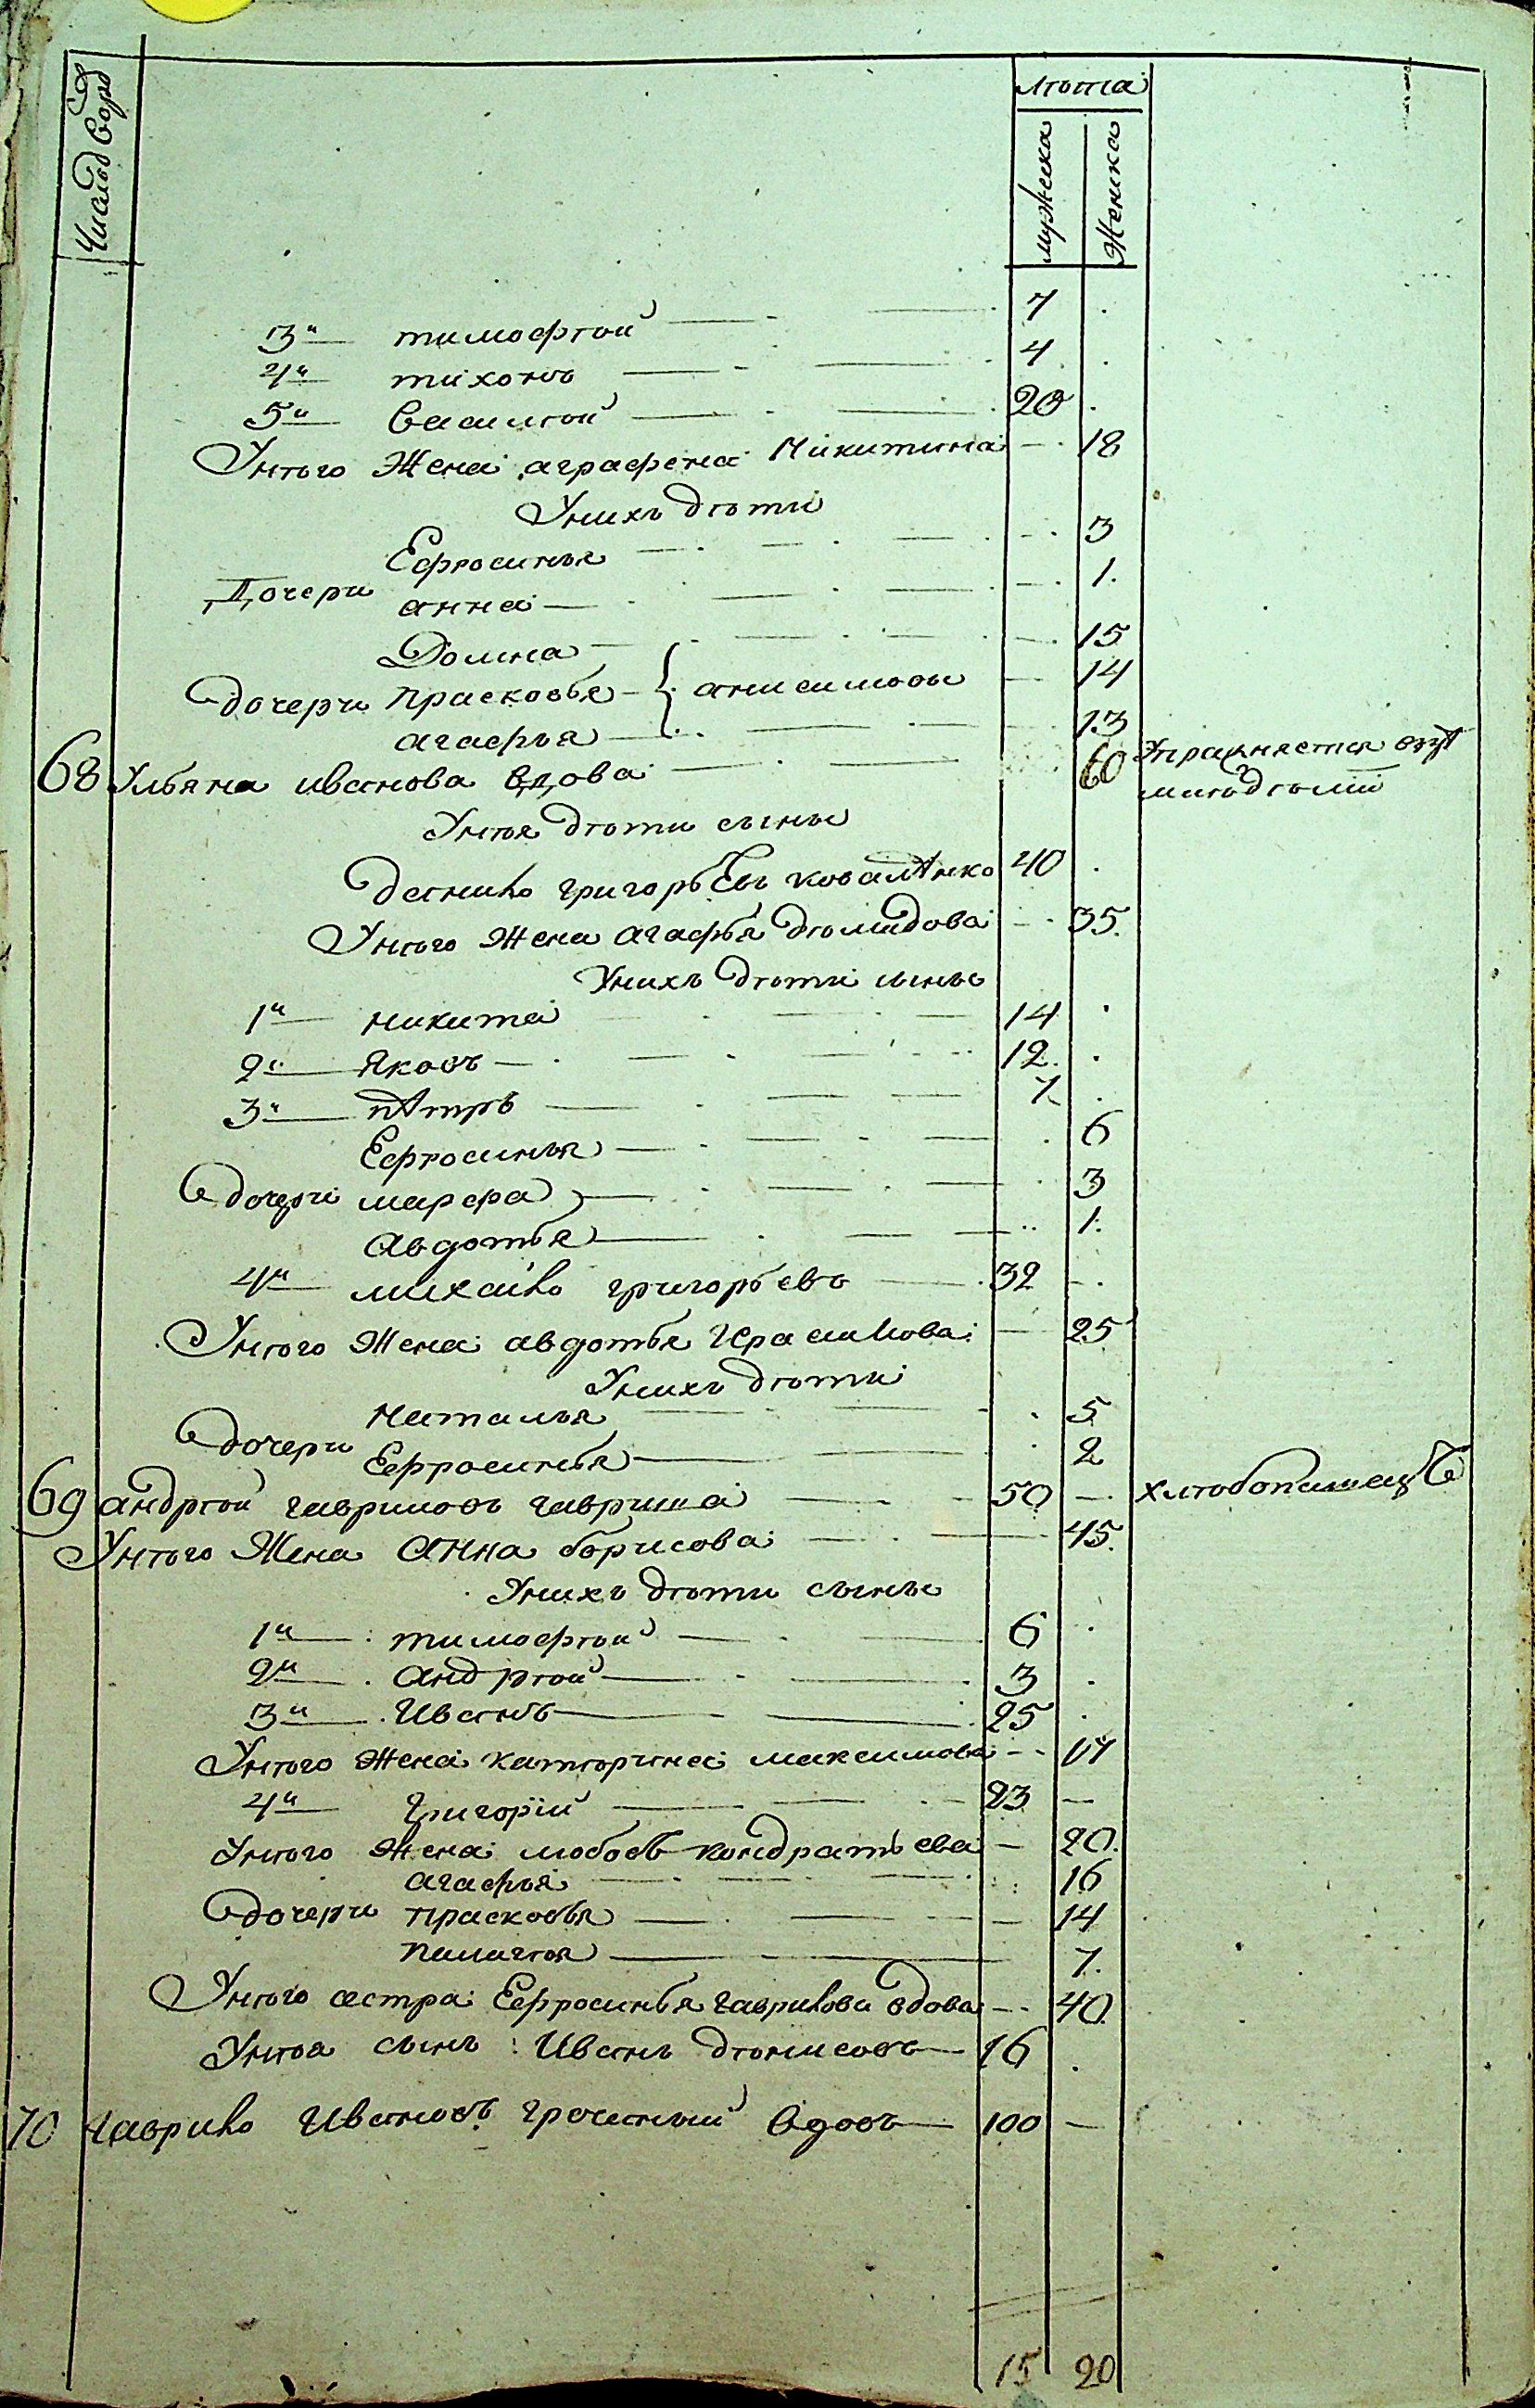 Число дворо
лѣта
мужска
женска
3й тимофѣй 7
4й тихонъ 4
5й василѣй 20
Унѣго Жена аграфена Никитина 18
Унихъ дѣти
Ефросинья 3
Дочери анна 1
Домна 15
дочери Прасковья анисимовы 14
агафья 13
68 Ульяна иванова вдова 60 Упражняется
Унѣя дѣти сыны
григорьевъ коваленко 40
Унѣго Жена агафья дѣмидова 35
Унихъ дѣти сыны
1й никита 14
2й яковъ 12
3й петръ 7
Ефросинья 6
дочери марфа 3
Авдотья 1
4й михайло григорьевъ 32
Унѣго Жена авдотья Герасимова 25
Унихъ дѣти
Наталья 5
дочери Ефросинья 2
69 андрѣй гавриловъ гавриша 50 хлѣбопашецъ
Унѣго Жена Анна борисова 45
Унихъ дѣти сыны
1й тимофѣй 6
2й андрѣй 3
3й Иванъ 25
Унѣго жена катѣрина максимова 17
4й Григорiй 23
Унѣго Жена любовь кондратьева 20
агафья 16
дочери прасковья 14
палагѣя 7
Унѣго сестра Ефросинья гаврилова вдова 40
Унѣя сынъ Иванъ дѣнисовъ 16
70 Гаврило Ивановъ вдовъ 100
15 20